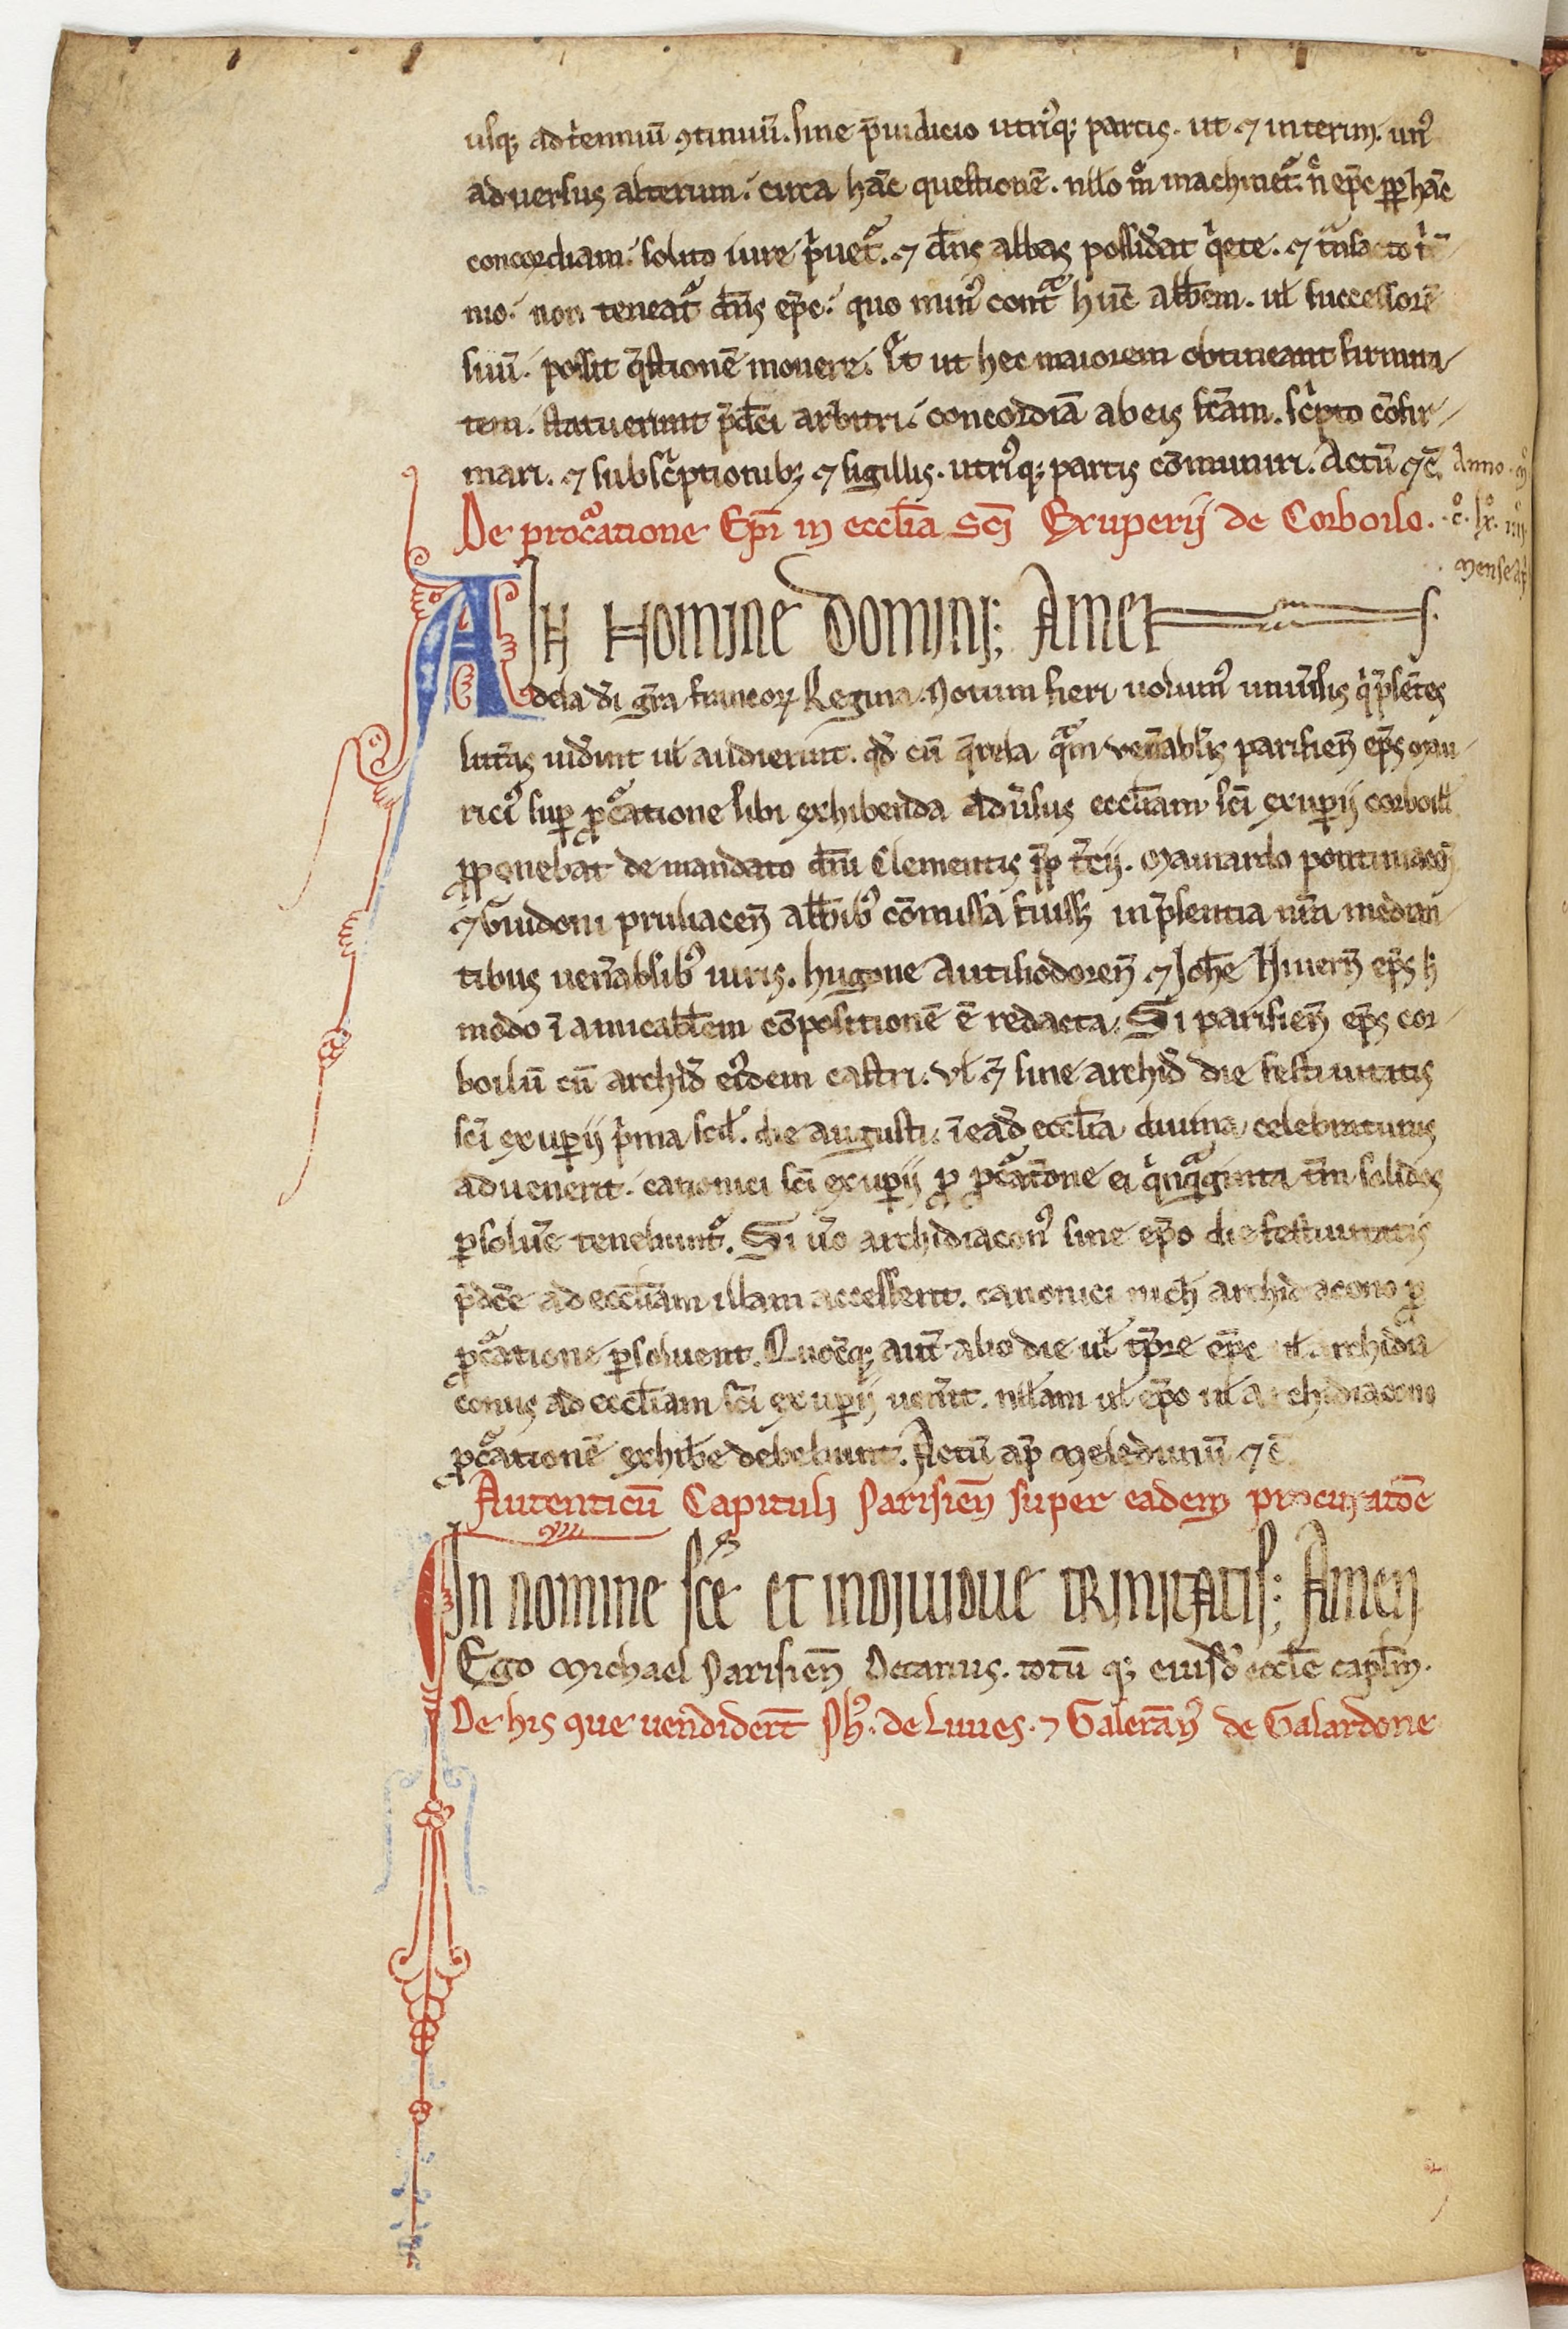 usq; ad t'ienniū ꝯtinuū. sine p̄iudicio utri᷒q; partis. ut ⁊ interim. un᷒
aduersus alterum. circa hāc questionē. nllo m̊ machinet᷑. n̊ epc̄ ꝓp̄ hāc
concordiam. soluto iure p'uet᷑. ⁊ dn̄s abbas possid̄at q'ete. ⁊ t̃nsacto t'ē-
nio. non teneat᷑ dn̄s epc̄. quo min᷒ cont̃ hūc abb̄em. ul̄ successorē
suū. possit q̄stionē mouere. Et ut hec maiorem obtineant firmita-
tem. statuerunt p̄dc̄i arbitri. concordiā ab eis fc̄am. sc'pto cōfir-
mari. ⁊ subsc'ptionib; ⁊ sigillis. utri᷒q; partis cōmuniri. Actū ⁊c̄ Anno. m̊
De proc̃atione Ep̄i in eccl̄ia Sc̄i Exuperii de Corboilo. .c̊. lx̊. iiij̊.
mense
IN Nomine Domini; Amen
Adela dī gr̄a francoꝝ Regina. Notum fieri uolum᷒ uniu̅sis q' p̄sentes
litt̄as uid̄int ul̄ audierint. qd̄ cū q̄rela q̃m uen̄abl̄is parisien̄ ep̄s mau-
rici᷒ sup̱ ꝓc̃atione sibi exhibenda adu̅sus eccl̄iam sc̄i exup̱ii corboil̄
ꝓponebat de mandato dn̄i Clementis pp̄ t̄cij. Mainardo pontiniacen̄
⁊ Guidoni pruliacen̄ abb̄ib᷒ cōmissa fuiss; in p̄sentia nr̄a median-
tibus uen̄abl̄ib᷒ uiris. hugone Autisiodoren̄ ⁊ Joh̄e Niuern̄ ep̄s h᷒
modo ī amicabl̄em cōpositionē ē redacta. Si parisien̄ ep̄s cor-
boilū cū archid̄ ei᷒dem castri. ul̄ ⁊ sine archid̄ die festiuitatis
sc̄i exup̱ii p'ma scil̄. die augusti. ī ead̄ eccl̄ia diuina celebraturus
aduenerit. canonici sc̄i exup̱ii ꝓ ꝓc̃atōne ei q'nq̃ginta tm̄ solidos
p̱solu̅e tenebunt᷑. Si u̅o archidiacon᷒ sine ep̄o die festiuitatis
p̄dc̄e ad eccl̄iam illam accesserit. canonici nich̄ archidiacono ꝓ
ꝓc̃atione p̱soluent. Quocūq; aut̄ alio die ul̄ tp̄re ep̄c ul̄ archidia-
conus ad eccl̄iam sc̄i exup̱ii uen̄it. nll̄am ul̄ ep̄o ul̄ archidiacono
ꝓc̃ationē exhib̄e debebunt. Actū ap̄ Meledunū ⁊c̄
Autenticū Capituli Parisien̄ super eadem procuratōe
In nomine sc̄e et indiuidue trinitatis; Amen
Ego Michael Parisien̄ Decanus. totū q; eiusd̄ eccl̄e capl̄m.
De his que uendider̄t Ph᷒. de Liues. ⁊ Galerān᷒ de Galardone